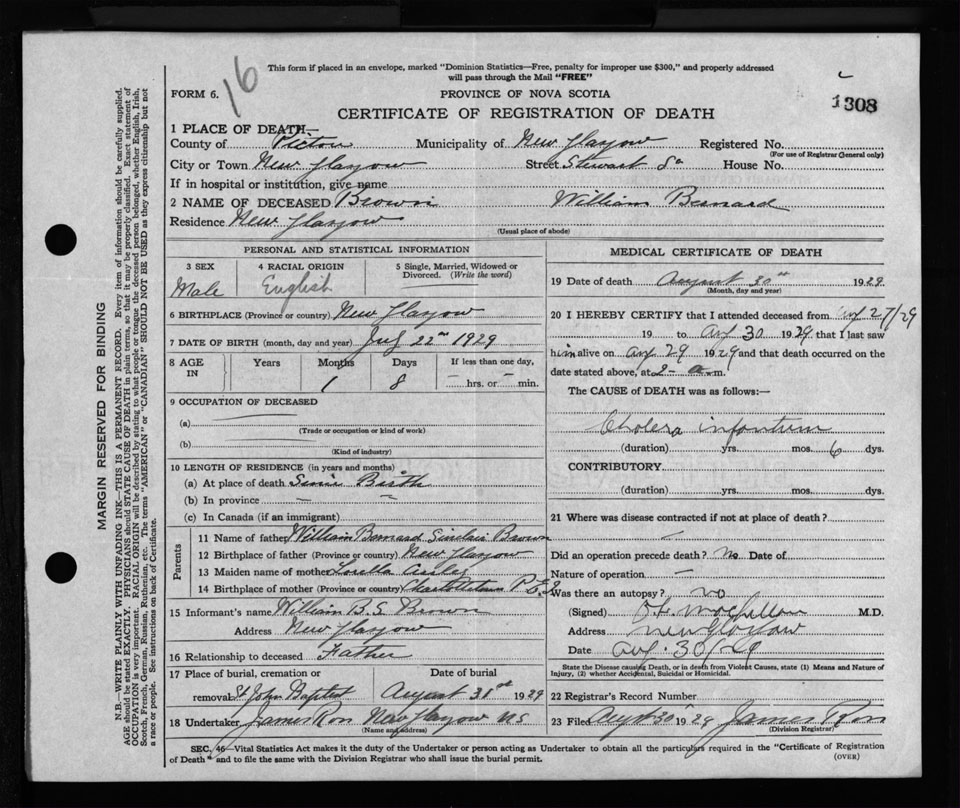 16
This form if placed in an envelope, marked "Dominion Statistics—Free, penalty for improper use $300," and properly addressed
will pass through the Mail "FREE"
FORM 6.
PROVINCE OF NOVA SCOTIA
1308
CERTIFICATE OF REGISTRATION OF DEATH
1 PLACE OF DEATH—
County of Pictou Municipality of New Glasgow Registered No.
(For use of Registrar General only)
City or Town New Glasgow Street Stewart St House No.
If in hospital or institution, give name
2 NAME OF DECEASED Brown William Bernard
Residence New Glasgow
(Usual place of abode)
PERSONAL AND STATISTICAL INFORMATION
3 SEX 4 RACIAL ORIGIN 5 Single, Married, Widowed or
Divorced. (Write the word)
Male English
6 BIRTHPLACE (Province or country) New Glasgow
7 DATE OF BIRTH (month, day and year) July 22nd 1929
8 AGE Years Months Days If less than one day,
IN 1 8 — hrs. or — min.
9 OCCUPATION OF DECEASED
(a)
(Trade or occupation or kind of work)
(b)
(Kind of industry)
10 LENGTH OF RESIDENCE (in years and months)
(a) At place of death Since Birth
(b) In province — "
(c) In Canada (if an immigrant)
Parents
11 Name of father William Bernard Sinclair Brown
12 Birthplace of father (Province or country) New Glasgow
13 Maiden name of mother Loretta
14 Birthplace of mother (Province or country) Charlottetown P.E.I.
15 Informant's name William B.S. Brown
Address New Glasgow
16 Relationship to deceased Father
17 Place of burial, cremation or Date of burial
removal St John Baptist August 31st 1929
18 Undertaker James New Glasgow NS
(Name and address)
MEDICAL CERTIFICATE OF DEATH
19 Date of death August 30th 1929
(Month, day and year)
20 I HEREBY CERTIFY that I attended deceased from Aug 27/29
19 to Aug 30 1929 that I last saw
him alive on Aug 29 1929 and that death occurred on
date stated above, at 2- a.m.
The CAUSE OF DEATH was as follows:—
Cholera infantum
(duration) yrs. mos. 6 dys.
CONTRIBUTORY
(duration) yrs. mos. dys.
21 Where was disease contracted if not at place of death?
—
Did an operation precede death? No Date of
Nature of operation —
Was there an autopsy? no
(Signed) M.D.
Address New Glasgow
Date Aug. 30/29
State the Disease causing Death, or in death from Violent Causes, state (1) Means and Nature of
Injury, (2) whether Accidental, Suicidal or Homicidal.
22 Registrar's Record Number
23 Filed Aug 30 1929 James
(Division Registrar)
SEC. 46—Vital Statistics Act makes it the duty of the Undertaker or person acting as Undertaker to obtain all the particulars required in the "Certificate of Registration
of Death" and to file the same with the Division Registrar who shall issue the burial permit. (OVER)
MARGIN RESERVED FOR BINDING
N.B.—WRITE PLAINLY, WITH UNFADING INK—THIS IS A PERMANENT RECORD. Every item of information should be carefully supplied.
AGE should be stated EXACTLY. PHYSICIANS should STATE CAUSE OF DEATH in plain terms, so that it may be properly classified. Exact statement of
OCCUPATION is very important. RACIAL ORIGIN will be described by stating to what people or tongue the deceased person belonged, whether English, Irish,
Scotch, French, German, Russian, Ruthenian, etc. The terms "AMERICAN" or "CANADIAN" SHOULD NOT BE USED as they express citizenship but not
a race or people. See instructions on back of Certificate.